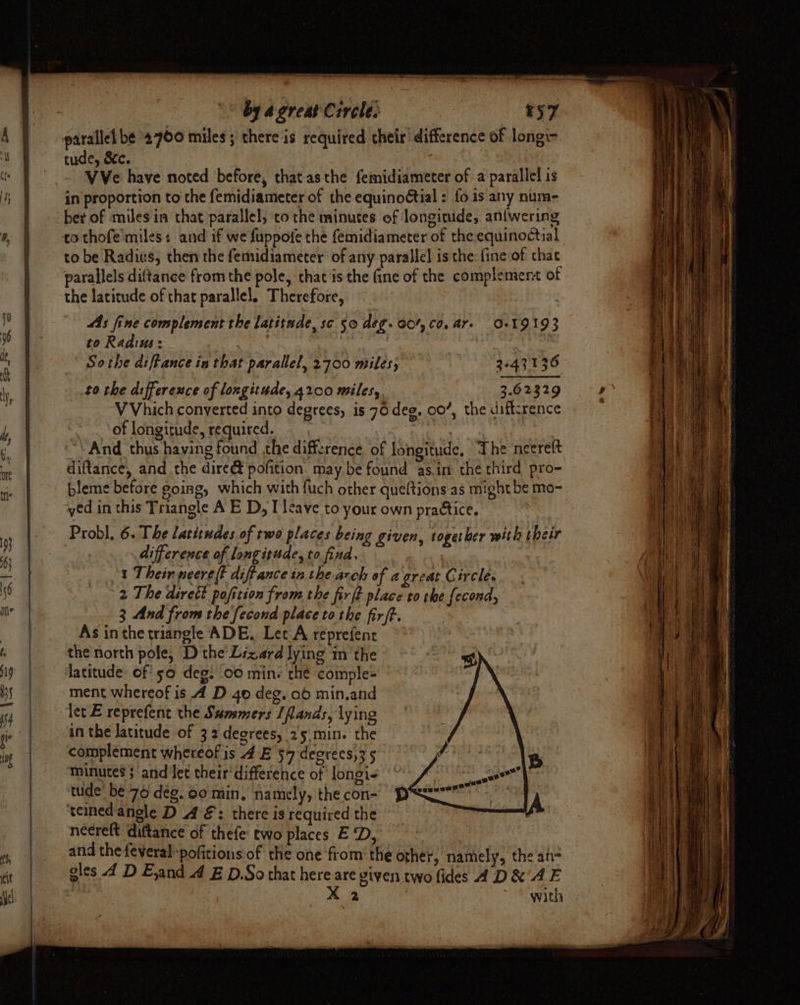 by a great Circle. 157
parallel be 2700 miles; there is required their difference of longi-
tude, &c.
VVe have noted before, that as the semidiameter of a parallel is
in proportion to the semidiameter of the equinoctial: so is any num-
ber of miles in that parallel, to the minutes of longitude, answering
to those miles: and if we suppose the semidiameter of the equinoctial
to be Radius, then the semidiameter of any parallel is the sine of that
parallels distance from the pole, that is the sine of the complement of
the latitude of that parallel. Therefore,
As sine complement the latitude, sc 50 deg. 00', co. ar. 0.19193
to Radius:
So the distance in that parallel, 2700 miles, 3.43136
to the difference of longitude, 4200 miles, 3.62329
VVhich converted into degrees, is 70 deg. 00', the difference
of longitude, required.
And thus having found the difference of longitude, The neerest
distance, and the direct position may be found as in the third pro-
bleme before going, which with such other questions as might be mo-
ved in this Triangle A E D, I leave to your own practice.
Probl. 6. The latitudes of two places being given, together with their
difference of longitude, to find.
1 Their neerest distance in the arch of a great Circle.
2 The direct position from the first place to the second,
3 And from the second place to the first.
As in the triangle ADE. Let A represent
the north pole, D the Lizard lying in the
latitude of 50 deg. 00 min. the comple-
ment whereof is A D 40 deg. 00 min. and
let E represent the Summers Islands, lying
in the latitude of 32 degrees, 25 min. the
complement whereof is A E 57 degrees, 35
minutes; and let their difference of longi-
tude be 70 deg. 00 min. namely, the con-
teined angle D A E: there is required the
neerest distance of these two places E D,
and the several positions of the one from the other, namely, the an-
gles A D E, and A E D. So that here are given two sides A D & A E
X 2 with
B
D
A